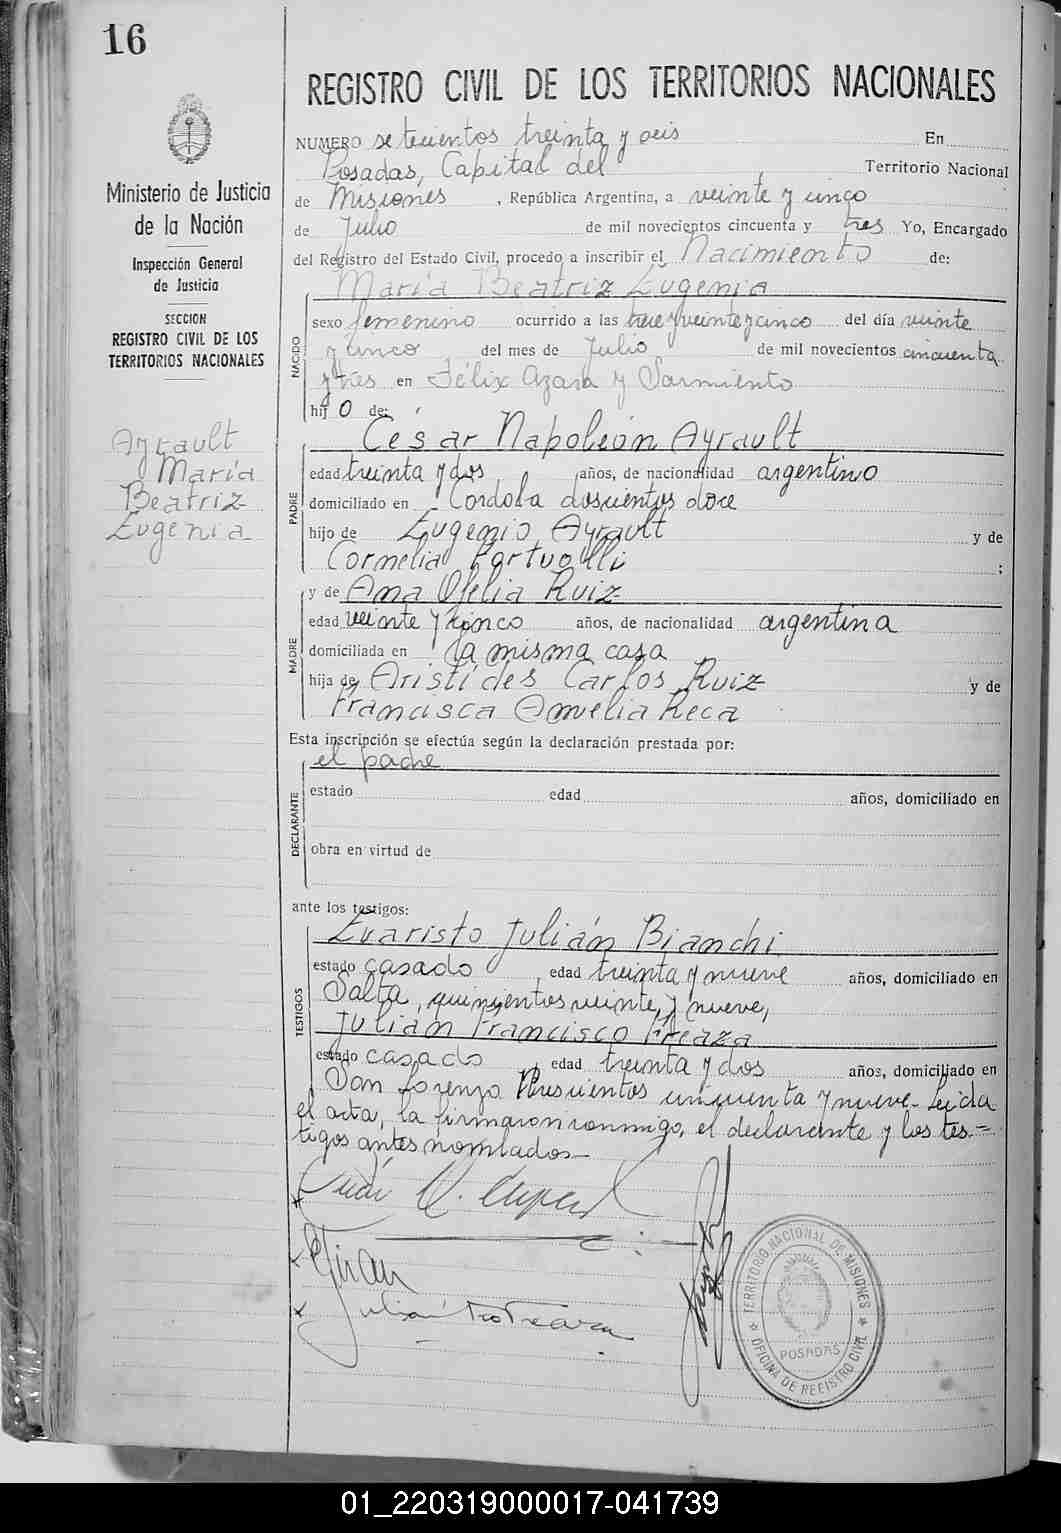 16
REGISTRO CIVIL DE LOS TERRITORIOS NACIONALES
Ministerio de Justicia
de la Nación
Inspección General
de Justicia
SECCION
REGISTRO CIVIL DE LOS
TERRITORIOS NACIONALES
Ayrault
María
Beatriz
Eugenia
NUMERO setecientos treinta y seis En
Posadas, Capital del Territorio Nacional
de Misiones, República Argentina, a veinte y cinco
de Julio de mil novecientos cincuenta y tres Yo, Encargado
del Registro del Estado Civil, procedo a inscribir el Nacimiento de:
María Beatriz Eugenia
NACIDO
sexo femenino ocurrido a las trece y veinte y cinco del día veinte
y cinco del mes de Julio de mil novecientos cincuenta
y tres en Félix Azara y Sarmiento
hij o de:
PADRE
César Napoleón Ayrault
edad treinta y dos años, de nacionalidad argentino
domiciliado en Córdoba doscientos doce
hijo de Eugenio Ayrault y de
Cornelia ;
MADRE
y de Ana Ofelia Ruiz
edad veinte y cinco años, de nacionalidad argentina
domiciliada en la misma casa
hija de Aristides Carlos Ruiz y de
Francisca Amelia Reca
Esta inscripción se efectúa según la declaración prestada por:
DECLARANTE
el padre
estado edad años, domiciliado en
obra en virtud de
ante los testigos:
TESTIGOS
Evaristo Julián Bianchi
estado casado, edad treinta y nueve años, domiciliado en
Salta, quinientos veinte y nueve,
Julián Francisco Freaza
estado casado, edad treinta y dos años, domiciliado en
San Lorenzo trescientos cincuenta y nueve - Leida
el acta, la firmaron conmigo, el declarante y los tes=
tigos antes nombrados -
TERRITORIO NACIONAL DE MISIONES
OFICINA DE REGISTRO CIVIL
POSADAS
01_220319000017-041739